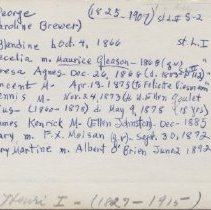 George (1825-1907) st. L I S-2
Caroline Brewer)
Blandine Oct. 4, 1866 St. L. I
Cecelia m. Maurice Gleason - 1868 (S.V.)
Teresa Agnes Dec. 26, 1868 (d. 1883
Vincent M - Apr. 13 - 1873 (to Felicite
Dennis M - Nov. 24, 1873 (to
Pius - (1860-1878) d. May 9, 1878 (18 yrs)
James Kenrick M - (Ellen Johnston) - Dec - 1885
Mary m. F.X. Moisan (q.v.) - Sept. 30, 1872
Mary Martine m. Albert O'Brien June 2 1892
Henri I - (1827-1915)